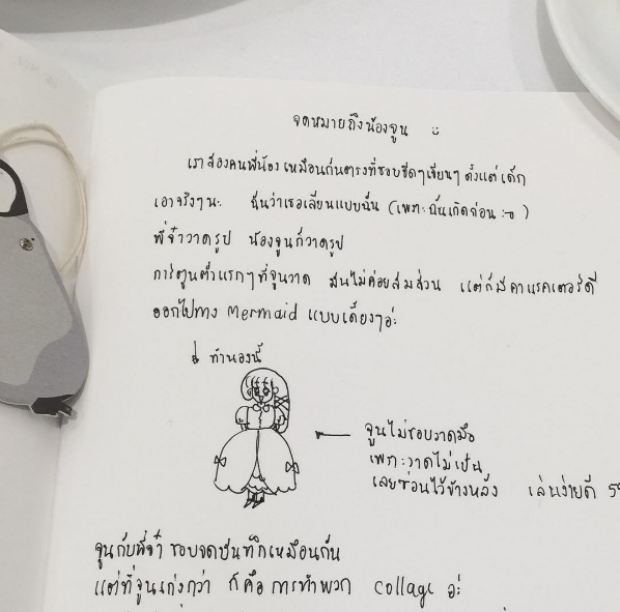 จดหมายถึงน้องจูน
เราสองคนพี่น้อง เหมือนกันตรงที่ชอบขีดๆเขียนๆ ตั้งแต่เด็ก
เอาจริงๆนะ ฉันว่าเธอเลียนแบบฉัน (เพราะฉันเกิดก่อน :-)
พี่จ๋าวาดรูป น้องจูนก็วาดรูป
การ์ตูนตัวแรกๆที่จูนวาด มันไม่ค่อยสมส่วน แต่ก็มีคาแรคเตอร์ดี
ออกไปทาง Mermaid แบบเดี้ยงๆอ่ะ
↓ ทำนองนี้
จูนไม่ชอบวาดมือ
เพราะวาดไม่เป็น
เลยซ่อนไว้ข้างหลัง เล่นง่ายดี 5
จูนกับพี่จ๋า ชอบจดบันทึกเหมือนกัน
แต่ที่จูนเก่งกว่า ก็คือ การทำพวก collage อ่ะ